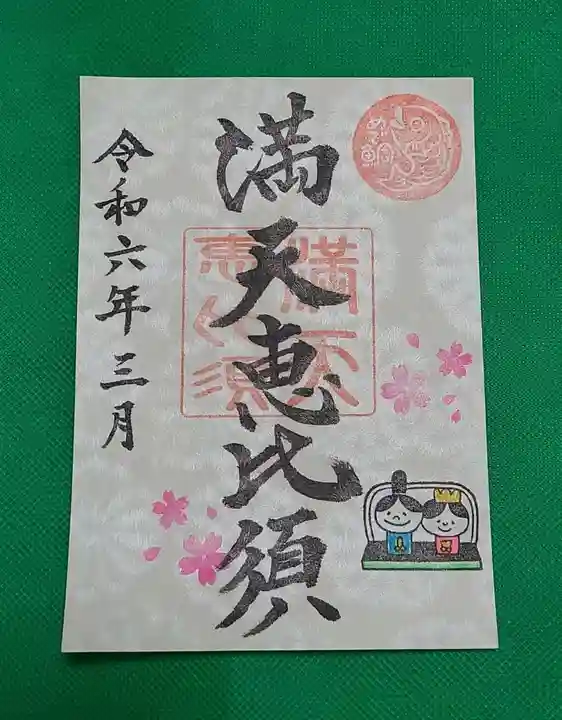 めで鯛
満天恵比須
満天
恵比須
令和六年三月